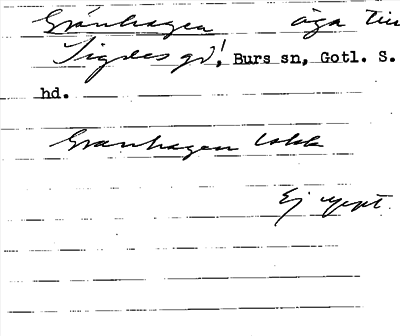 Gränhagen äga till
Sigdes gd!, Burs sn, Gotl. S.
hd.
Granhagen
Ej uppt.